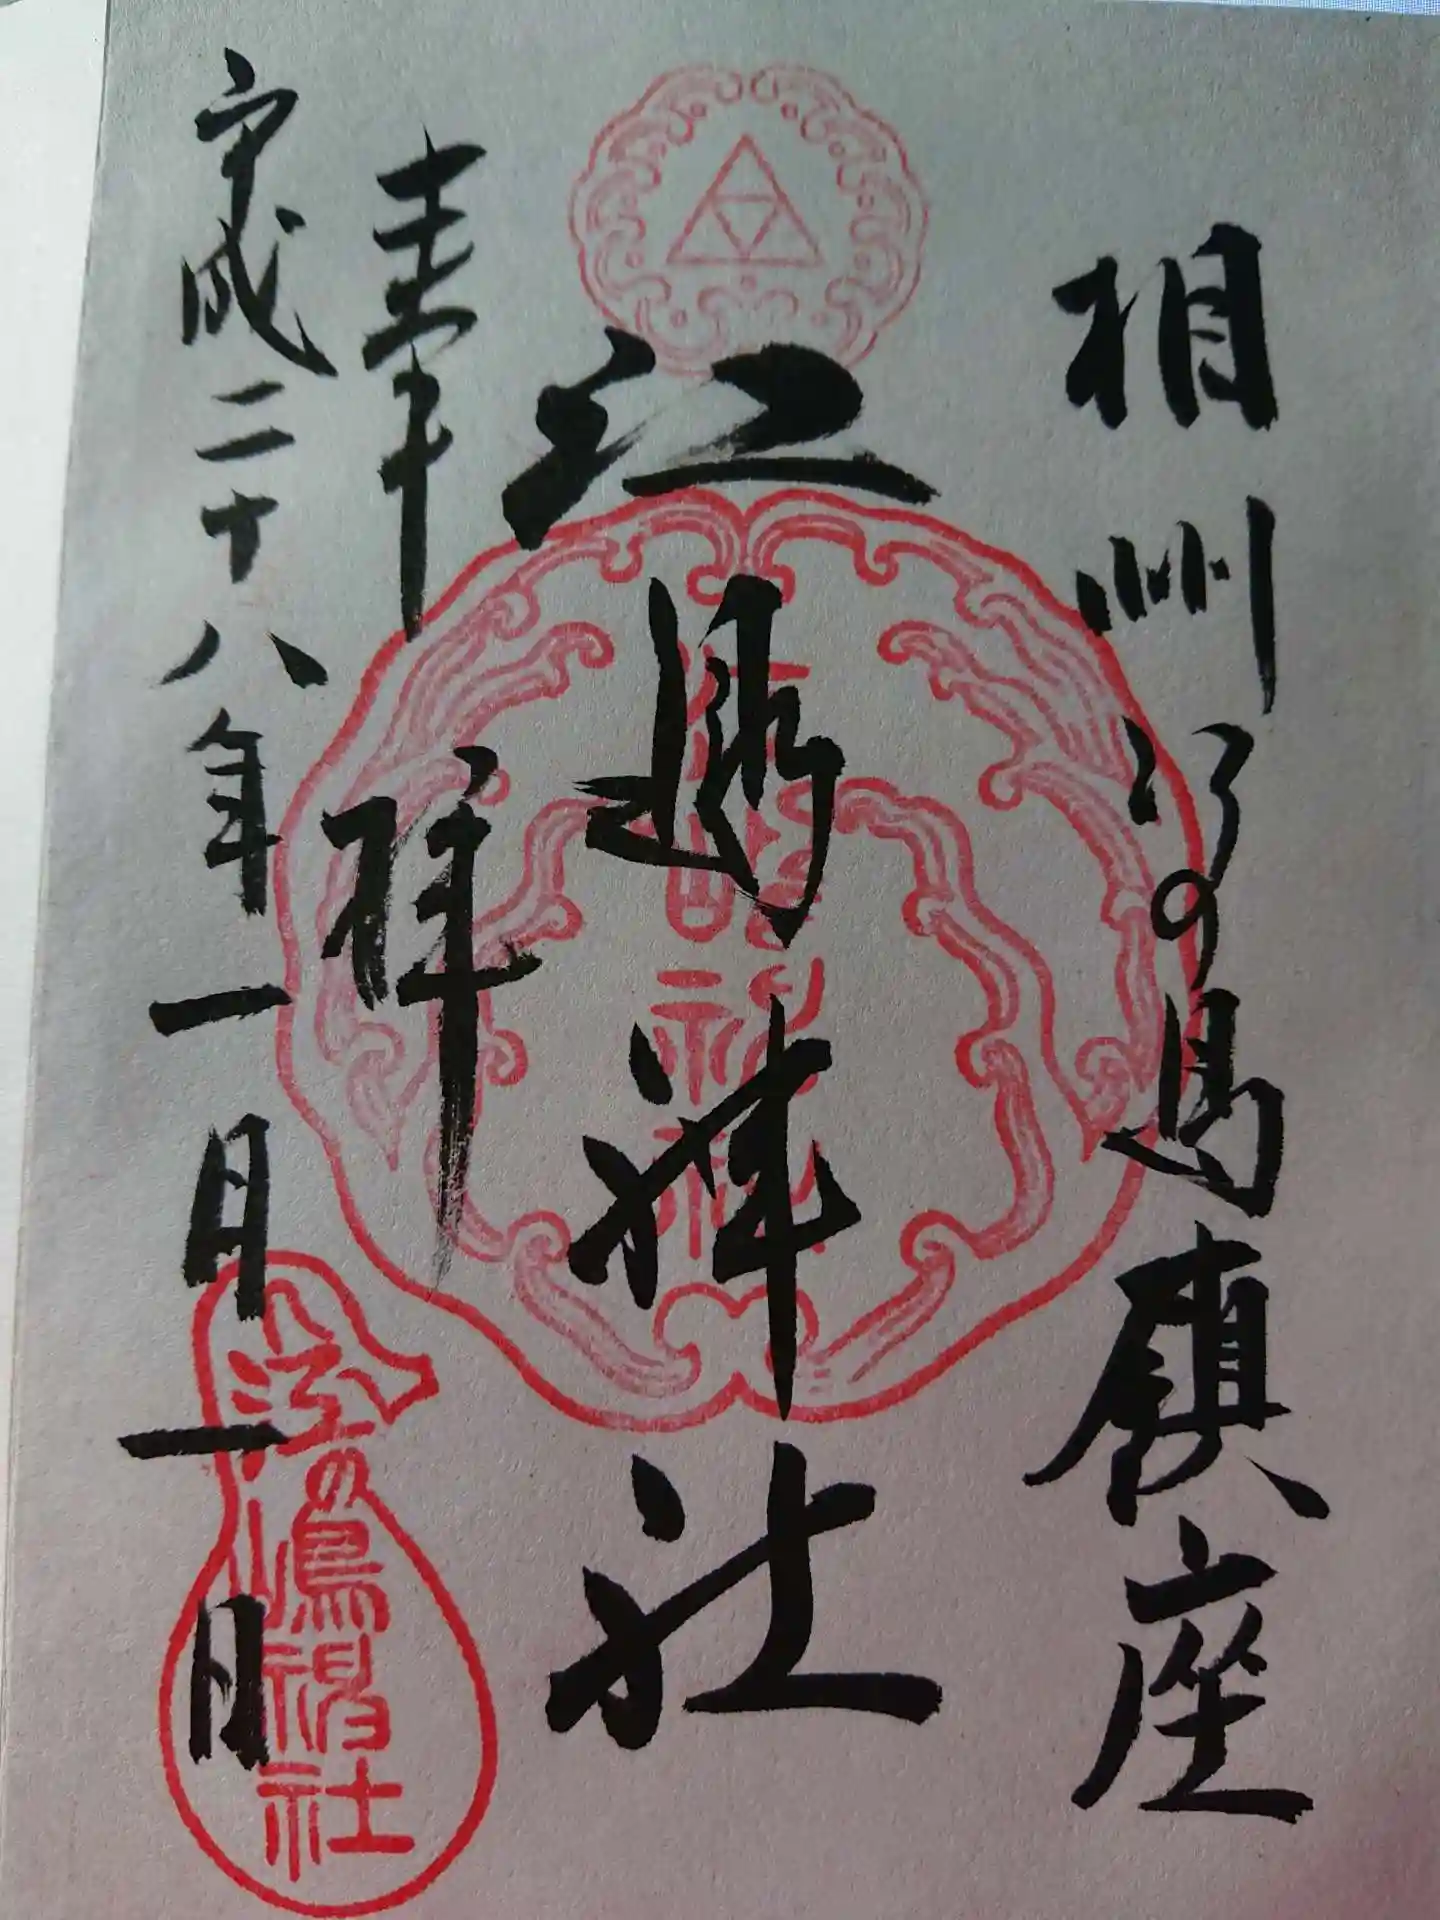 相州江の島鎮座
江島神社
奉拝
平成二十八年一月一日
江の島神社